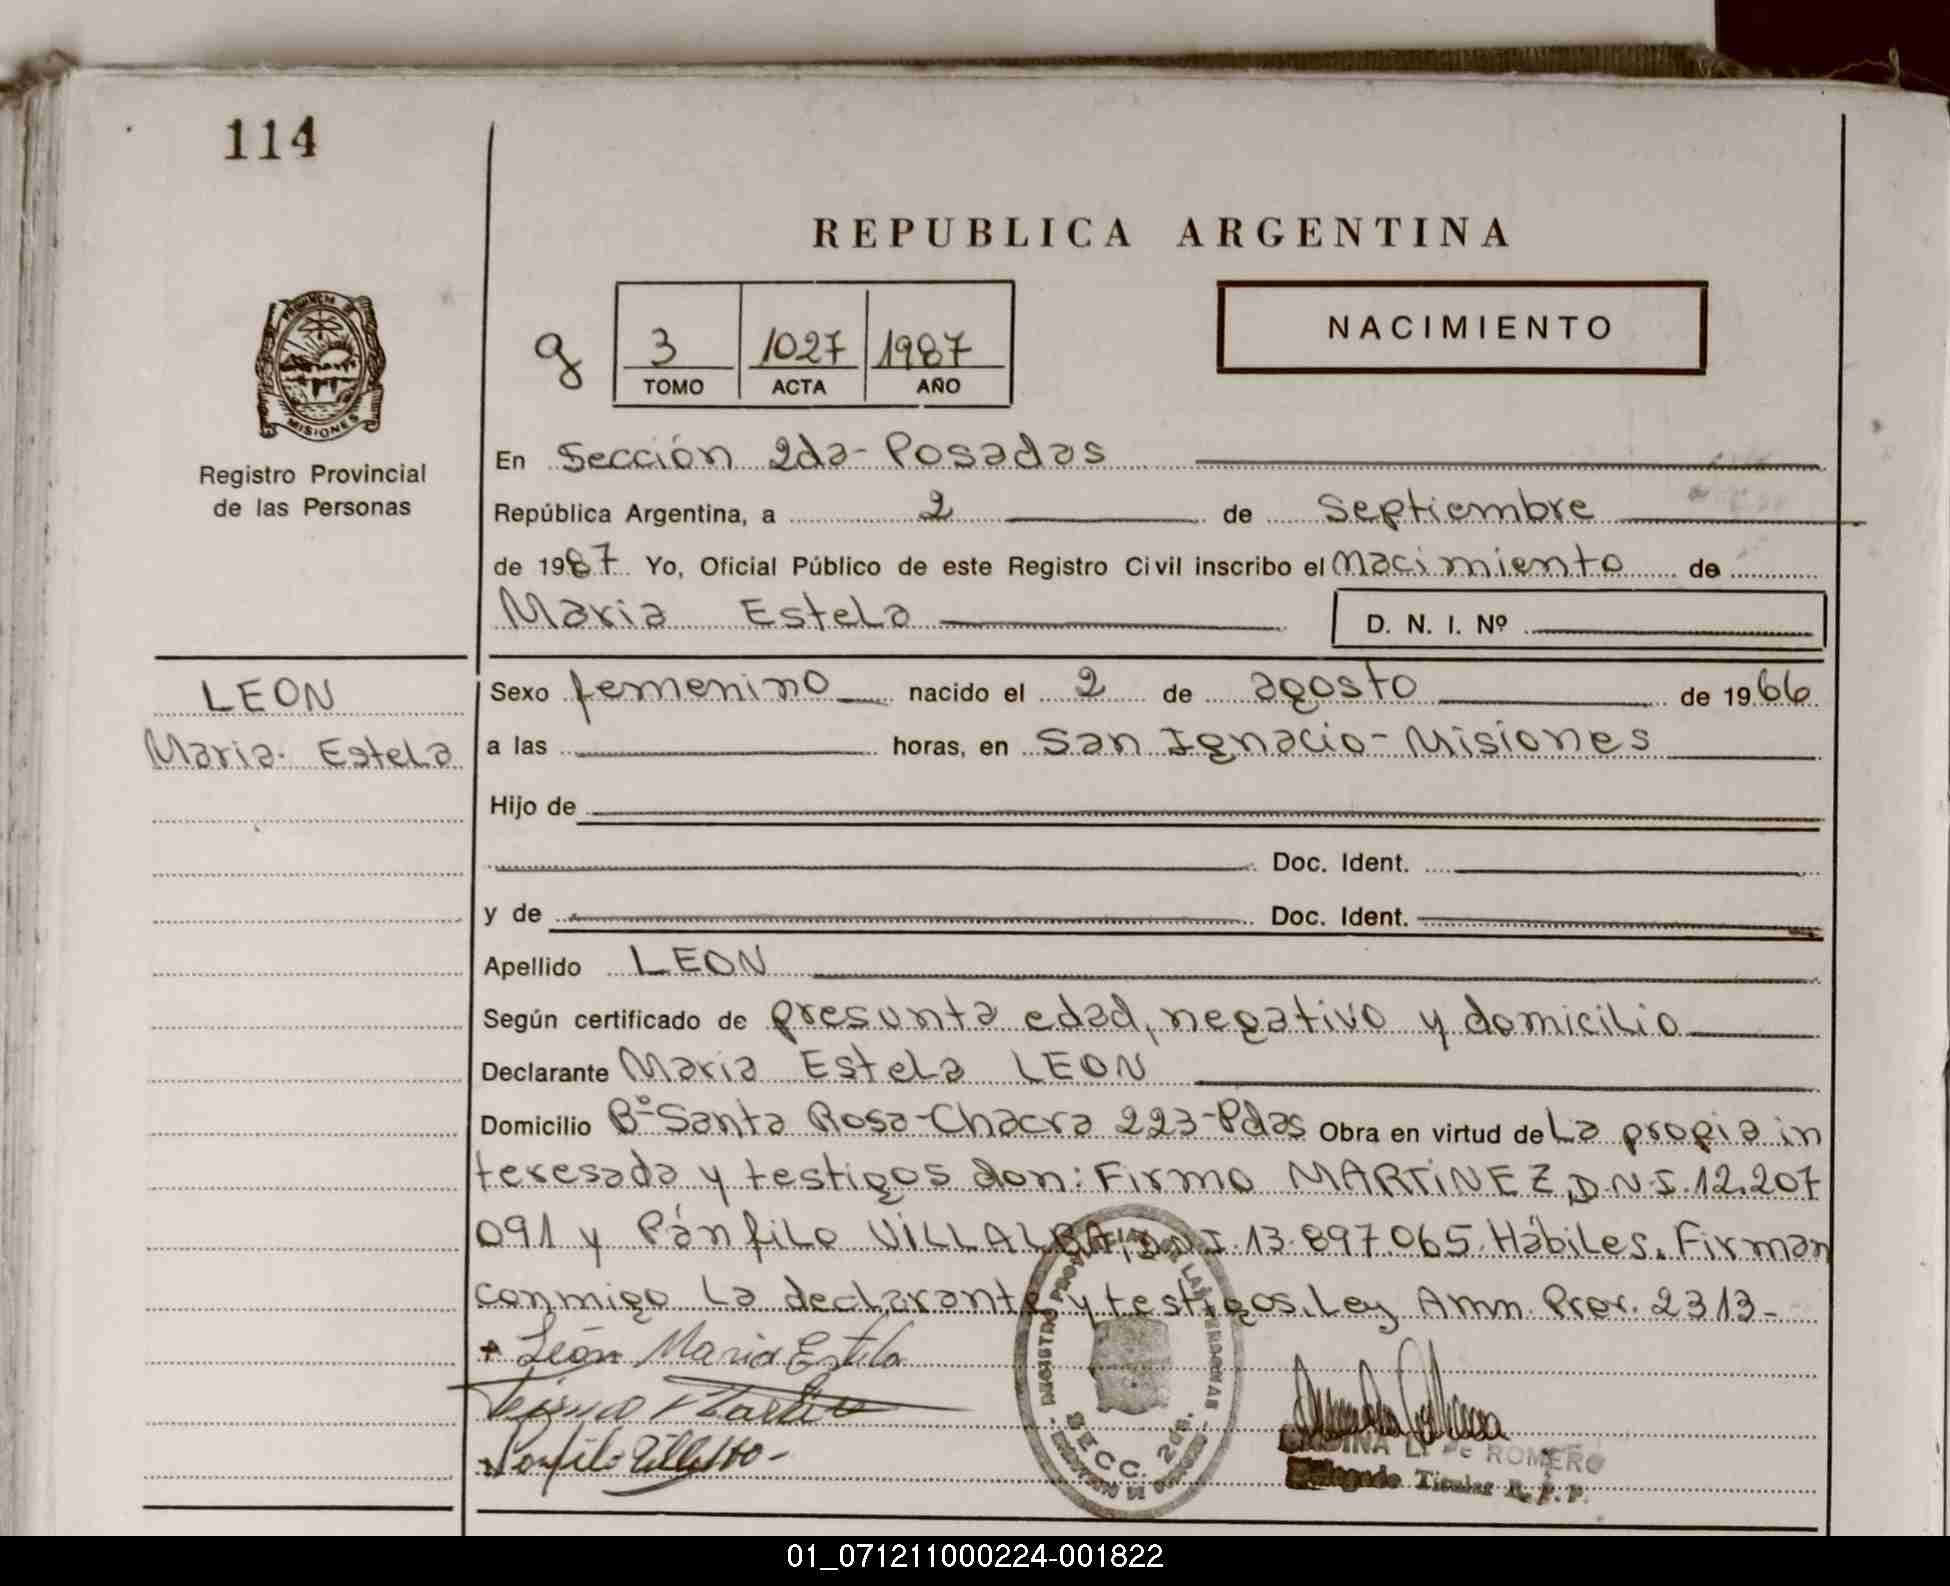 114
REPUBLICA ARGENTINA
PROVINCIA DE
MISIONES
Registro Provincial
de las Personas
g 3 1027 1987
TOMO ACTA AÑO
NACIMIENTO
En Sección 2da- Posadas
República Argentina, a 2 de Septiembre
de 1987 Yo, Oficial Público de este Registro Civil inscribo el Nacimiento de
Maria Estela D. N. I. Nº
LEON
Maria Estela
Sexo femenino nacido el 2 de agosto de 1966
a las horas, en San Ignacio- Misiones
Hijo de
Doc. Ident.
y de Doc. Ident.
Apellido LEON
Según certificado de presunta edad, negativo y domicilio
Declarante Maria Estela LEON
Domicilio Bº Santa Rosa-Chacra 223-Pdas Obra en virtud de La propia in
teresada y testigos don: Firmo MARTINEZ, D.N.I. 12.207
091 y Pánfilo VILLALBA, D.N.I. 13.897.065. Hábiles. Firman
conmigo La declarante y testigos. Ley Amn. Pror. 2313-
+ León Maria Estela
SECC. 2da.
L. de ROMERO
Delegado Titular R. P. P.
01_071211000224-001822